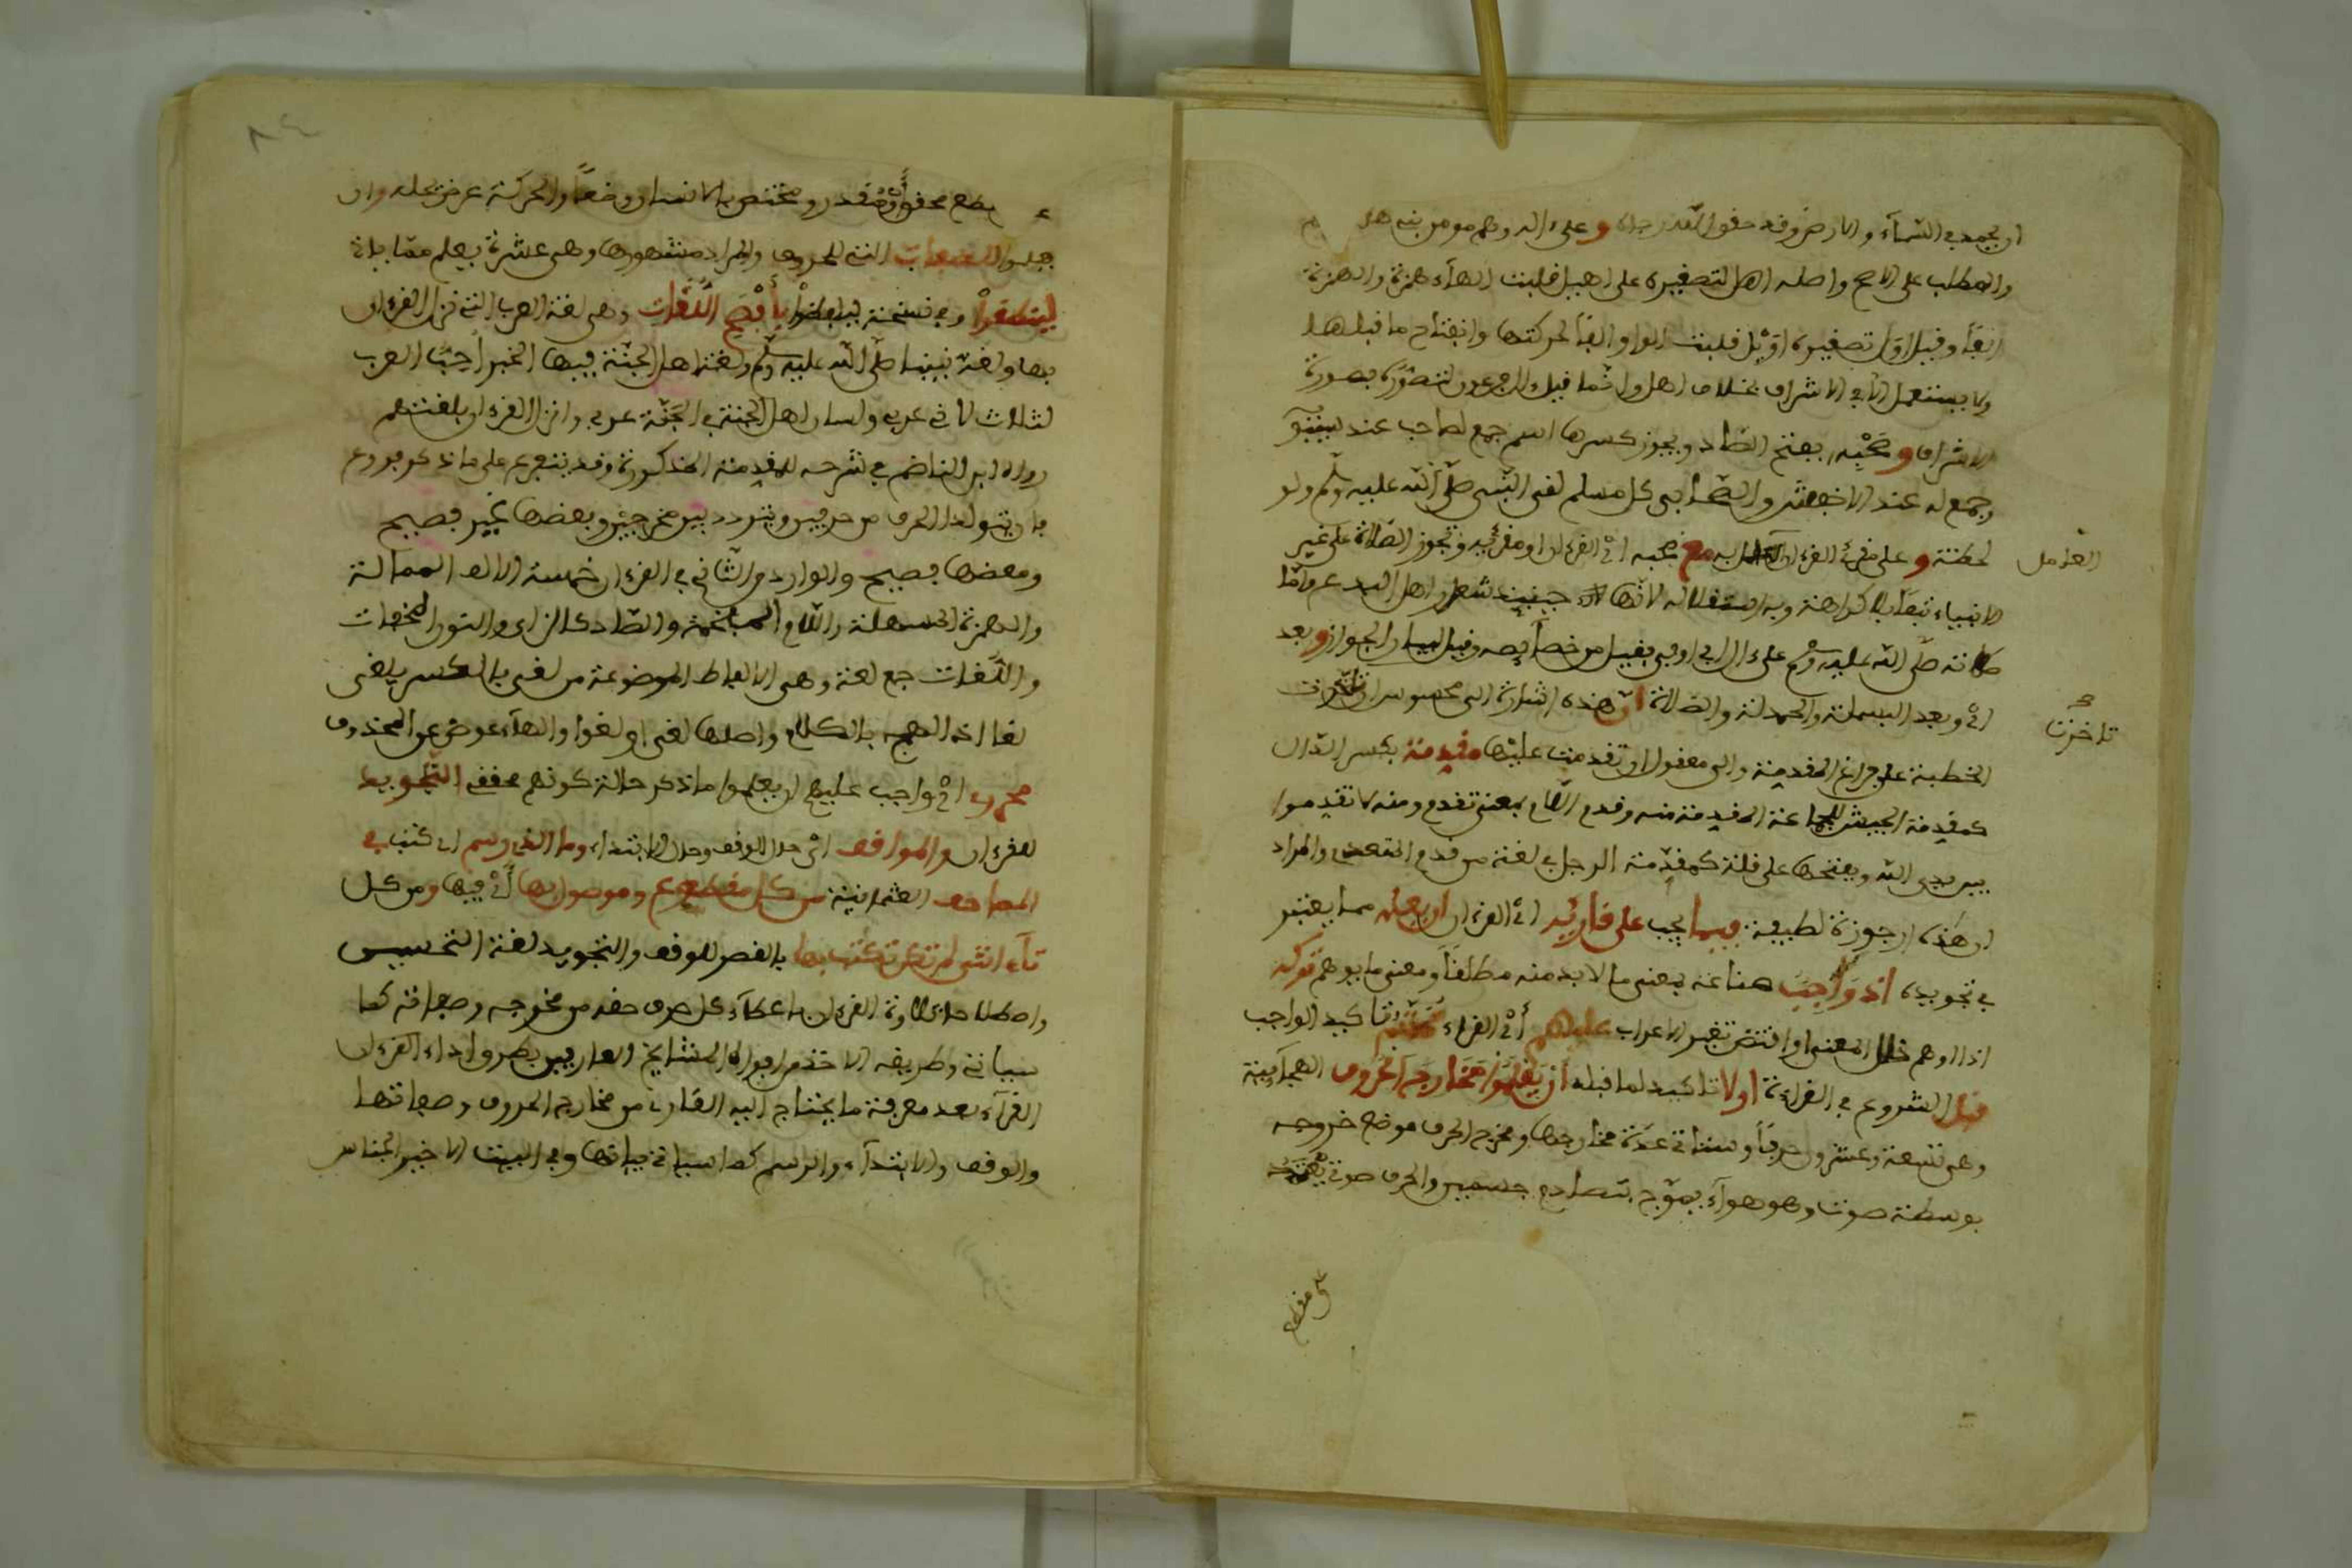 او نجمد في السماء والارض وقد حقق الله رجاءه وعلى اله وهم مومنو بني هاشم
والمطلب على الاصح واصله اهل لتصغيره على اهيل قلبت الهاء همزة والهمزة
الفا وقيل اول تصغيره اويل قلبت الواو الفا لحركتها وانفتاح ما قبلها
ولا يستعمل الا في الاشراف بخلاف اهل وانما قيل ءال فرعون لتصوره بصورة
الاشراف وصحبه بفتح الصاد ويجوز كسرها اسم جمع لصاحب عند سيبويه
وجمع له عند الاخفش والصحابي كل مسلم لقي النبي صلى الله عليه وسلم ولو
لحظة وعلى مقرئ القرءان العامل به مع محبه اي القرءان او مقرئه وتجوز الصلاة على غير
الانبياء تبعا بلا كراهة وبه استقلالا لانها حينئذ شعار اهل البدع واما
صلاته صلى الله عليه وسلم على ءال ابي اوفى فقيل من خصائصه وقيل لبيان الجواز وبعد
اي وبعد البسملة والحمدلة والصلاة ان هذه اشارة الى محسوس ان تاخرت
الخطبة على فراغ المقدمة والى معقول ان تقدمت عليها مقدمة بكسر الدال
كمقدمة الجيش للجماعة المتقدمة منه وقدم اللازم بمعنى تقدم ومنه لا تقدموا
بين يدي الله وبفتحها على قلة كمقدمة الرجل في لغة من قدم المتعدي والمراد
ان هذه ارجوزة لطيفة فيما يجب على قارئه اي القرءان ان يعلمه مما يعتبر
في تجويده اذ واجب صناعة بمعنى ما لا بد منه مطلقا ومعنى ما يوهم تركه
اذا اوهم خلل المعنى او اقتضى تغير الاعراب عليهم اي القراء محتم تاكيد الواجب
قبل الشروع في القراءة اولا تاكيد لما قبله ان يعلموا مخارج الحروف الهجائية
وهي تسعة وعشرون حرفا وستاتي عدة مخارجها ومخرج الحرف موضع خروجه
بوسطة صوت وهو هواء يتموج بتصادم جسمين والحرف صوت يعتمد
العامل
تاخرت
على مقطع
مقطع محقق او مقدر ومختص بالانسان وضعا والحركة عرض تحله وان
يعلموا الصفات التي للحروف والمراد مشهورها وهي عشرة يعلم مما ياتي
لينطقوا وفي نسخة ليلفظوا بافصح اللغات وهي لغة العرب التي نزل القرءان
بها ولغة نبينا صلى الله عليه وسلم ولغة اهل الجنة فيها الخبر احب العرب
لثلاث لاني عربي ولسان اهل الجنة في الجنة عربي وانزل القرءان بلغتهم
رواه ابن الناظم في شرحه للمقدمة المذكورة وقد يتفرع على ما ذكر فروع
بان يتولد الحرف من حرفين ويتردد بين مخرجين وبعضها غير فصيح
وبعضها فصيح والوارد من الثاني في القرءان خمسة الالف الممالة
والهمزة المسهلة واللام المفخمة والصاد كالزاي والنون المخفات
واللغات جمع لغة وهي الالفاظ الموضوعة من لغي بالكسر يلغى
لغا اذا لهج بالكلام واصلها لغي او لغو والهاء عوض عن المحذوف
محرري اي واجب عليهم ان يعلموا ما ذكر حالة كونهم محققي التجويد
للقرءان والمواقف اي محل الوقف ومحل الابتداء وما الذي رسم اي كتب في
المصاحف العثمانية من كل مقطوع وموصول بها اي فيها ومن كل
تاء انثى لم تكن تكتب بها بالقصر للوقف والتجويد لغة التحسين
واصطلاحا تلاوة القرءان باعطاء كل حرف حقه من مخرجه وصفاته كما
سياتي وطريقه الاخذ من افواه المشايخ العارفين بطرق اداء القرءان
القراء بعد معرفة ما يحتاج اليه القارئ من مخارج الحروف وصفاتها
والوقف والابتداء والرسم كما سياتي بيانها وفي البيت الاخير الجناس